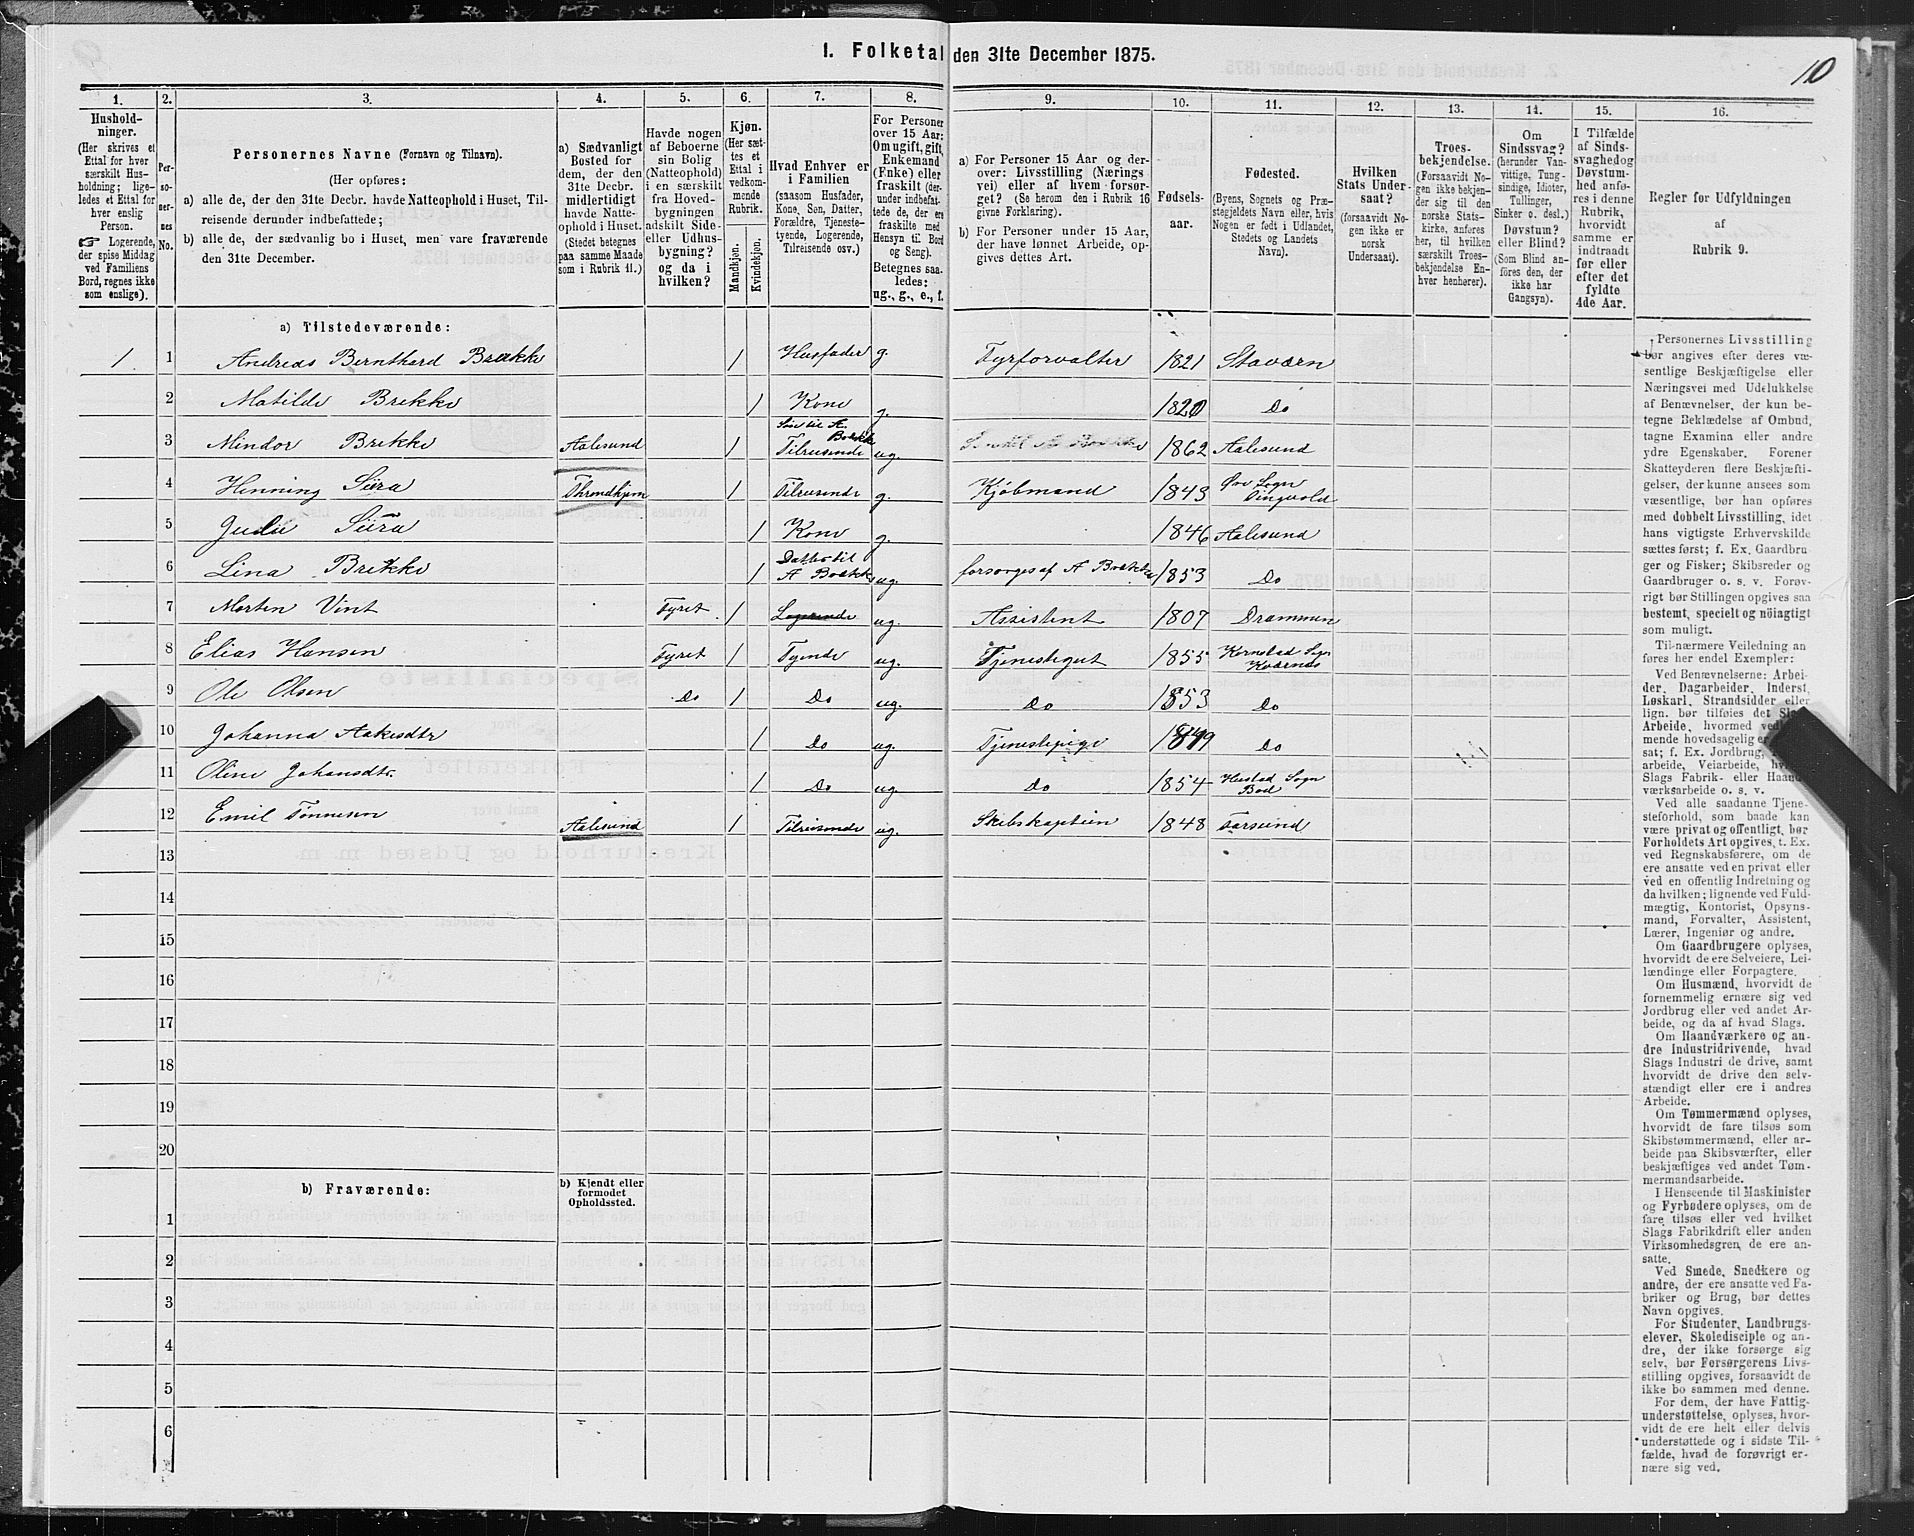 1. Folketal den 31te December 1875.
10
1.
2.
3.
4.
5.
6.
7.
8.
9.
10.
11.
12.
13.
14.
15.
16.
Hushold-
ninger.
(Her skrives et
Ettal for hver
særskilt Hus-
holdning; lige-
ledes et Ettal for
hver enslig
Person.
☞ Logerende,
der spise Middag
ved Familiens
Bord, regnes ikke
som enslige).
Per-
so-
ner-
nes
No.
Personernes Navne (Fornavn og Tilnavn).
(Her opføres:
a) alle de, der den 31te Decbr. havde Natteophold i Huset, Til-
reisende derunder indbefattede;
b) alle de, der sædvanlig bo i Huset, men vare fraværende
den 31te December.
a) Sædvanligt
Bosted for
dem, der den
31te Decbr.
midlertidigt
havde Natte-
ophold i Huset.
(Stedet betegnes
paa samme Maade
som i Rubrik 11.)
Havde nogen
af Beboerne
sin Bolig
(Natteophold)
i en særskilt
fra Hoved-
bygningen
adskilt Side-
eller Udhus-
bygning?
og da i
hvilken?
Kjøn.
(Her sæt-
tes et
Ettal i
vedkom-
mende
Rubrik.
Mandkjøn.
Kvindekjøn.
Hvad Enhver er
i Familien
(saasom Husfader,
Kone, Søn, Datter,
Forældre, Tjeneste-
tyende, Logerende,
Tilreisende osv.)
For Personer
over 15 Aar:
Om ugift, gift,
Enkemand
(Enke) eller
fraskilt (der-
under indbefat-
tede de, der ere
fraskilte med
Hensyn til Bord
og Seng).
Betegnes saa-
ledes:
ug., g., e., f.
a) For Personer 15 Aar og der-
over: Livsstilling (Nærings
vei) eller af hvem forsør-
get? (Se herom den i Rubrik 16
givne Forklaring).
b) For Personer under 15 Aar,
der have lønnet Arbeide, op-
gives dettes Art.
Fødsels-
aar.
Fødested.
(Byens, Sognets og Præ-
stegjeldets Navn eller, hvis
Nogen er født i Udlandet,
Stedets og Landets
Navn).
Hvilken
Stats Under-
saat?
(forsaavidt No-
gen ikke er
norsk
Undersaat).
Troes-
bekjendelse.
(Forsaavidt No-
gen ikke bekjen-
der sig til den
norske Stats-
kirke, anføres
her, til hvilken
særskilt Troes-
bekjendelse En-
hver henhører).
Om
Sindssvag?
(herunder Van-
vittige, Tung-
sindige, Idioter,
Tullinger,
Sinker o. desl.)
Døvstum?
eller Blind?
(Som Blind an-
føres den, der
ikke har
Gangsyn).
I Tilfælde
af Sinds-
svaghed og
Døvstum-
hed anfø-
res i denne
Rubrik,
hvorvidt
samme er
indtraadt
før eller
efter det
fyldte
4de Aar.
Regler for Udfyldningen
af
Rubrik 9.
a) Tilstedeværende:
1 1 Andreas Bernthard Brekke 1 Husfader g. Fyrforvalter 1821 Staværn
2 Matilde Brekke 1 Kone g. 1820 Do
3 Mindor Brekke Aalesund 1 Søn til A. Brekke Tilreisende ug. 1862 Aalesund
4 Henning Siira Throndhjem 1 Tilreisende g. Kjøbmand 1843 Øre Sogn Tingvold
5 Julie Siira 1 Kone g. 1846 Aalesund
6 Lina Brekke 1 Datter til A Brekke ug. forsørges af A Brekke 1853 Do
7 Morten Vint Fyret 1 Logerende ug. Assistent 1807 Drammen
8 Elias Hansen Fyret 1 Tyende ug. Tjenestegut 1855 Kornstad Sogn Kværnes
9 Ole Olsen Do 1 Do ug. Do 1853 Do
10 Johanna Aakesdtr 1 Do ug. Tjenestepige 1849 Do
11 Oline Johansdtr. 1 Do ug. Do 1854 Hustad Sogn Bod
12 Emil Tønnesen Aalesund 1 Tilreisende ug. Skibskaptein 1848 Farsund
13
14
15
16
17
18
19
20
b) Fraværende:
b) Kjendt eller
formodet
Opholdssted.
1
2
3
4
5
6
Personernes Livsstilling
bør angives efter deres væ-
sentlige Beskjæftigelse eller
Næringsvei med Udelukkelse
af Benævnelser, der kun be-
tegne Beklædelse af Ombud,
tagne Examina eller andre
ydre Egenskaber. Forener
Skatteyderen flere Beskjæfti-
gelser, der kunne ansees som
væsentlige, bør han opføres
med dobbelt Livsstilling, idet
hans vigtigste Erhvervskilde
sættes først; f. Ex. Gaardbru-
ger og Fisker; Skibsreder og
Gaardbruger o. s. v. Forøv-
rigt bør Stillingen opgives saa
bestemt, specielt og nöiagtigt
som muligt.
Til nærmere Veiledning an
føres her endel Exempler:
Ved Benævnelserne: Arbei-
der, Dagarbeider, Inderst,
Løskarl, Strandsidder eller
lign. bør tilføies det Slags
Arbeide, hvormed vedkom-
mende hovedsagelig er
sat; f. Ex. Jordbrug,
arbeide, Veiarbeide,
Slags Fabrik- eller Haand-
værksarbeide o. s. v.
Ved alle saadanne Tjene-
steforhold, som baade kan
være privat og offentligt, bør
Forholdets Art opgives, t. Ex.
ved Regnskabsførere, om de
ere ansatte ved en privat eller
ved en offentlig Indretning og
da hvilken; lignende ved Fuld-
mægtig, Kontorist, Opsyns-
mand, Forvalter, Assistent,
Lærer, Ingeniør og andre.
Om Gaardbrugere oplyses,
hvorvidt de ere Selveiere, Lei-
lændinge eller Forpagtere.
Om Husmænd, hvorvidt de
fornemmelig ernære sig ved
Jordbrug eller ved andet Ar-
beide, og da af hvad Slags.
Om Haandværkere og an-
dre Industridrivende, hvad
Slags Industri de drive, samt
hvorvidt de drive den selv-
stændigt eller ere i andres
Arbeide.
Om Tømmermænd oplyses,
hvorvidt de fare tilsøs som
Skibstømmermænd, eller ar-
beide paa Skibsværfter, eller
beskjæftiges ved andet Tøm-
mermandsarbeide.
I Henseende til Maskinister
og Fyrbødere oplyses, om de
fare tilsøs eller ved hvilket
Slags Fabrikdrift eller anden
Virksomhedsgren de ere an-
satte.
Ved Smede, Snedkere og
andre, der ere ansatte ved Fa-
briker og Brug, bør dettes
Navn opgives.
For Studenter, Landbrugs-
elever, Skoledisciple og an-
dre, der ikke forsørge sig
selv, bør Forsørgerens Livs-
stilling opgives, forsaavidt de
ikke bo sammen med denne.
For dem, der have Fattig-
understøttelse, oplyses, hvor-
vidt de ere helt eller delvis
understøttede og i sidste Til-
fælde, hvad de forøvrigt er-
nære sig ved.